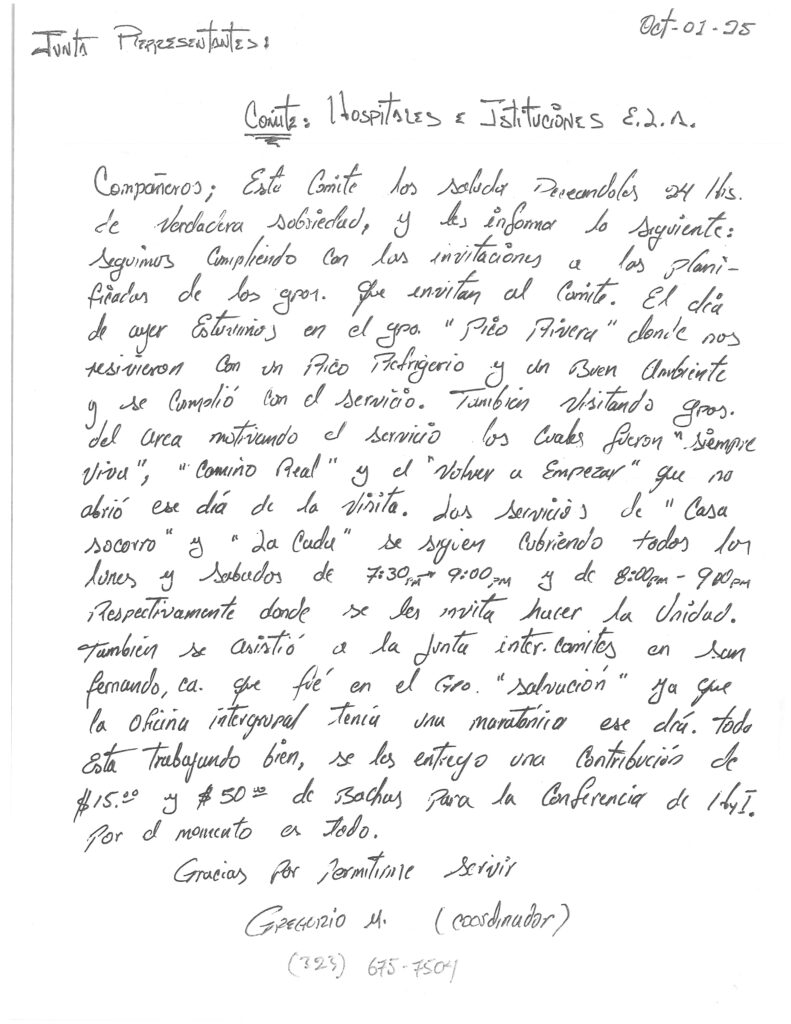 Oct-01-25
Junta Representantes:
Comite: Hospitales e Istituciones E.L.A.
Compañeros; Este Comite los saluda Deceandoles 24 Hrs.
de verdadera sobriedad, y les informa lo siguiente:
seguimos Cumpliendo con las invitaciones a las plani-
ficadas de los gpos. que envitan al Comite. El día
de ayer Estuvimos en el gpo. "Pico Rivera" donde nos
resivieron con un Rico Refrigerio y un Buen Ambiente
y se cumplió con el servicio. También visitando gpos.
del area motivando el servicio los cuales fueron "siempre
viva", "Camino Real" y el "Volver a Empezar" que no
abrió ese día de la visita. Los servicios de "Casa
socorro" y "La Cada" se siguen cubriendo todos los
lunes y sabados de 7:30pm - 9:00pm y de 8:00pm - 900pm
Respectivamente donde se les invita hacer la Unidad.
También se asistió a la Junta inter.comites en san
fernando, ca. que fué en el Gpo. "salvación" ya que
la oficina intergrupal tenia una maratónica ese día. todo
Esta trabajando bien, se les entrego una Contribución de
$15.00 y $50.00 de Bachas para la Conferencia de HyI.
Por el momento es Todo.
Gracias por permitirme servir
Gregorio M. (coordinador)
(323) 675-7504